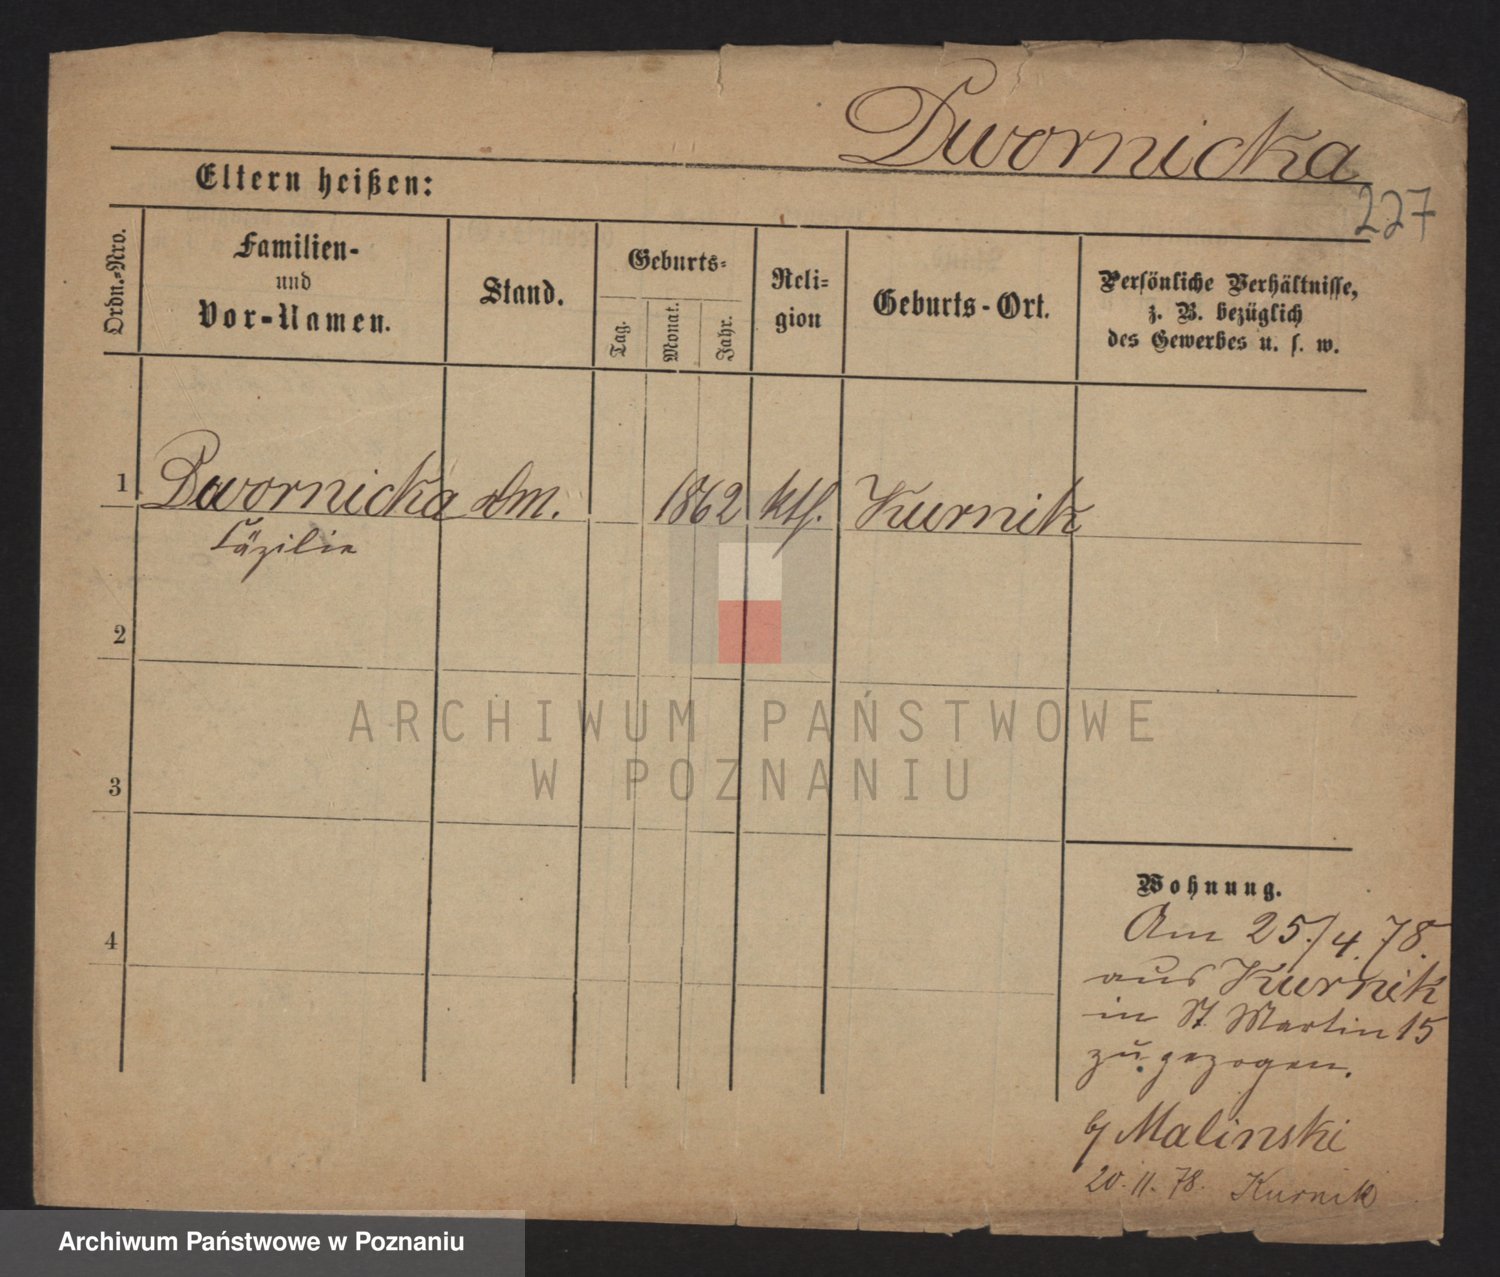 Dwornicka
227
Eltern heißen:
Ordn.-Nro.
Familien-
und
Vor-Namen.
Stand.
Geburts-
Tag.
Monat.
Jahr.
Reli-
gion
Geburts-Ort.
Persönliche Verhältnisse,
z. B. bezüglich
des Gewerbes u. s. w.
1 Dwornicka dm. 1862 kth. Kurnik
Cäzilie
2
3
4
Wohnung.
Am 25./4. 78.
aus Kurnik
in St Martin 15
zu gezogen.
b/ Malinski
20.11.78. Kurnik
ARCHIWUM PAŃSTWOWE
W POZNANIU
Archiwum Państwowe w Poznaniu